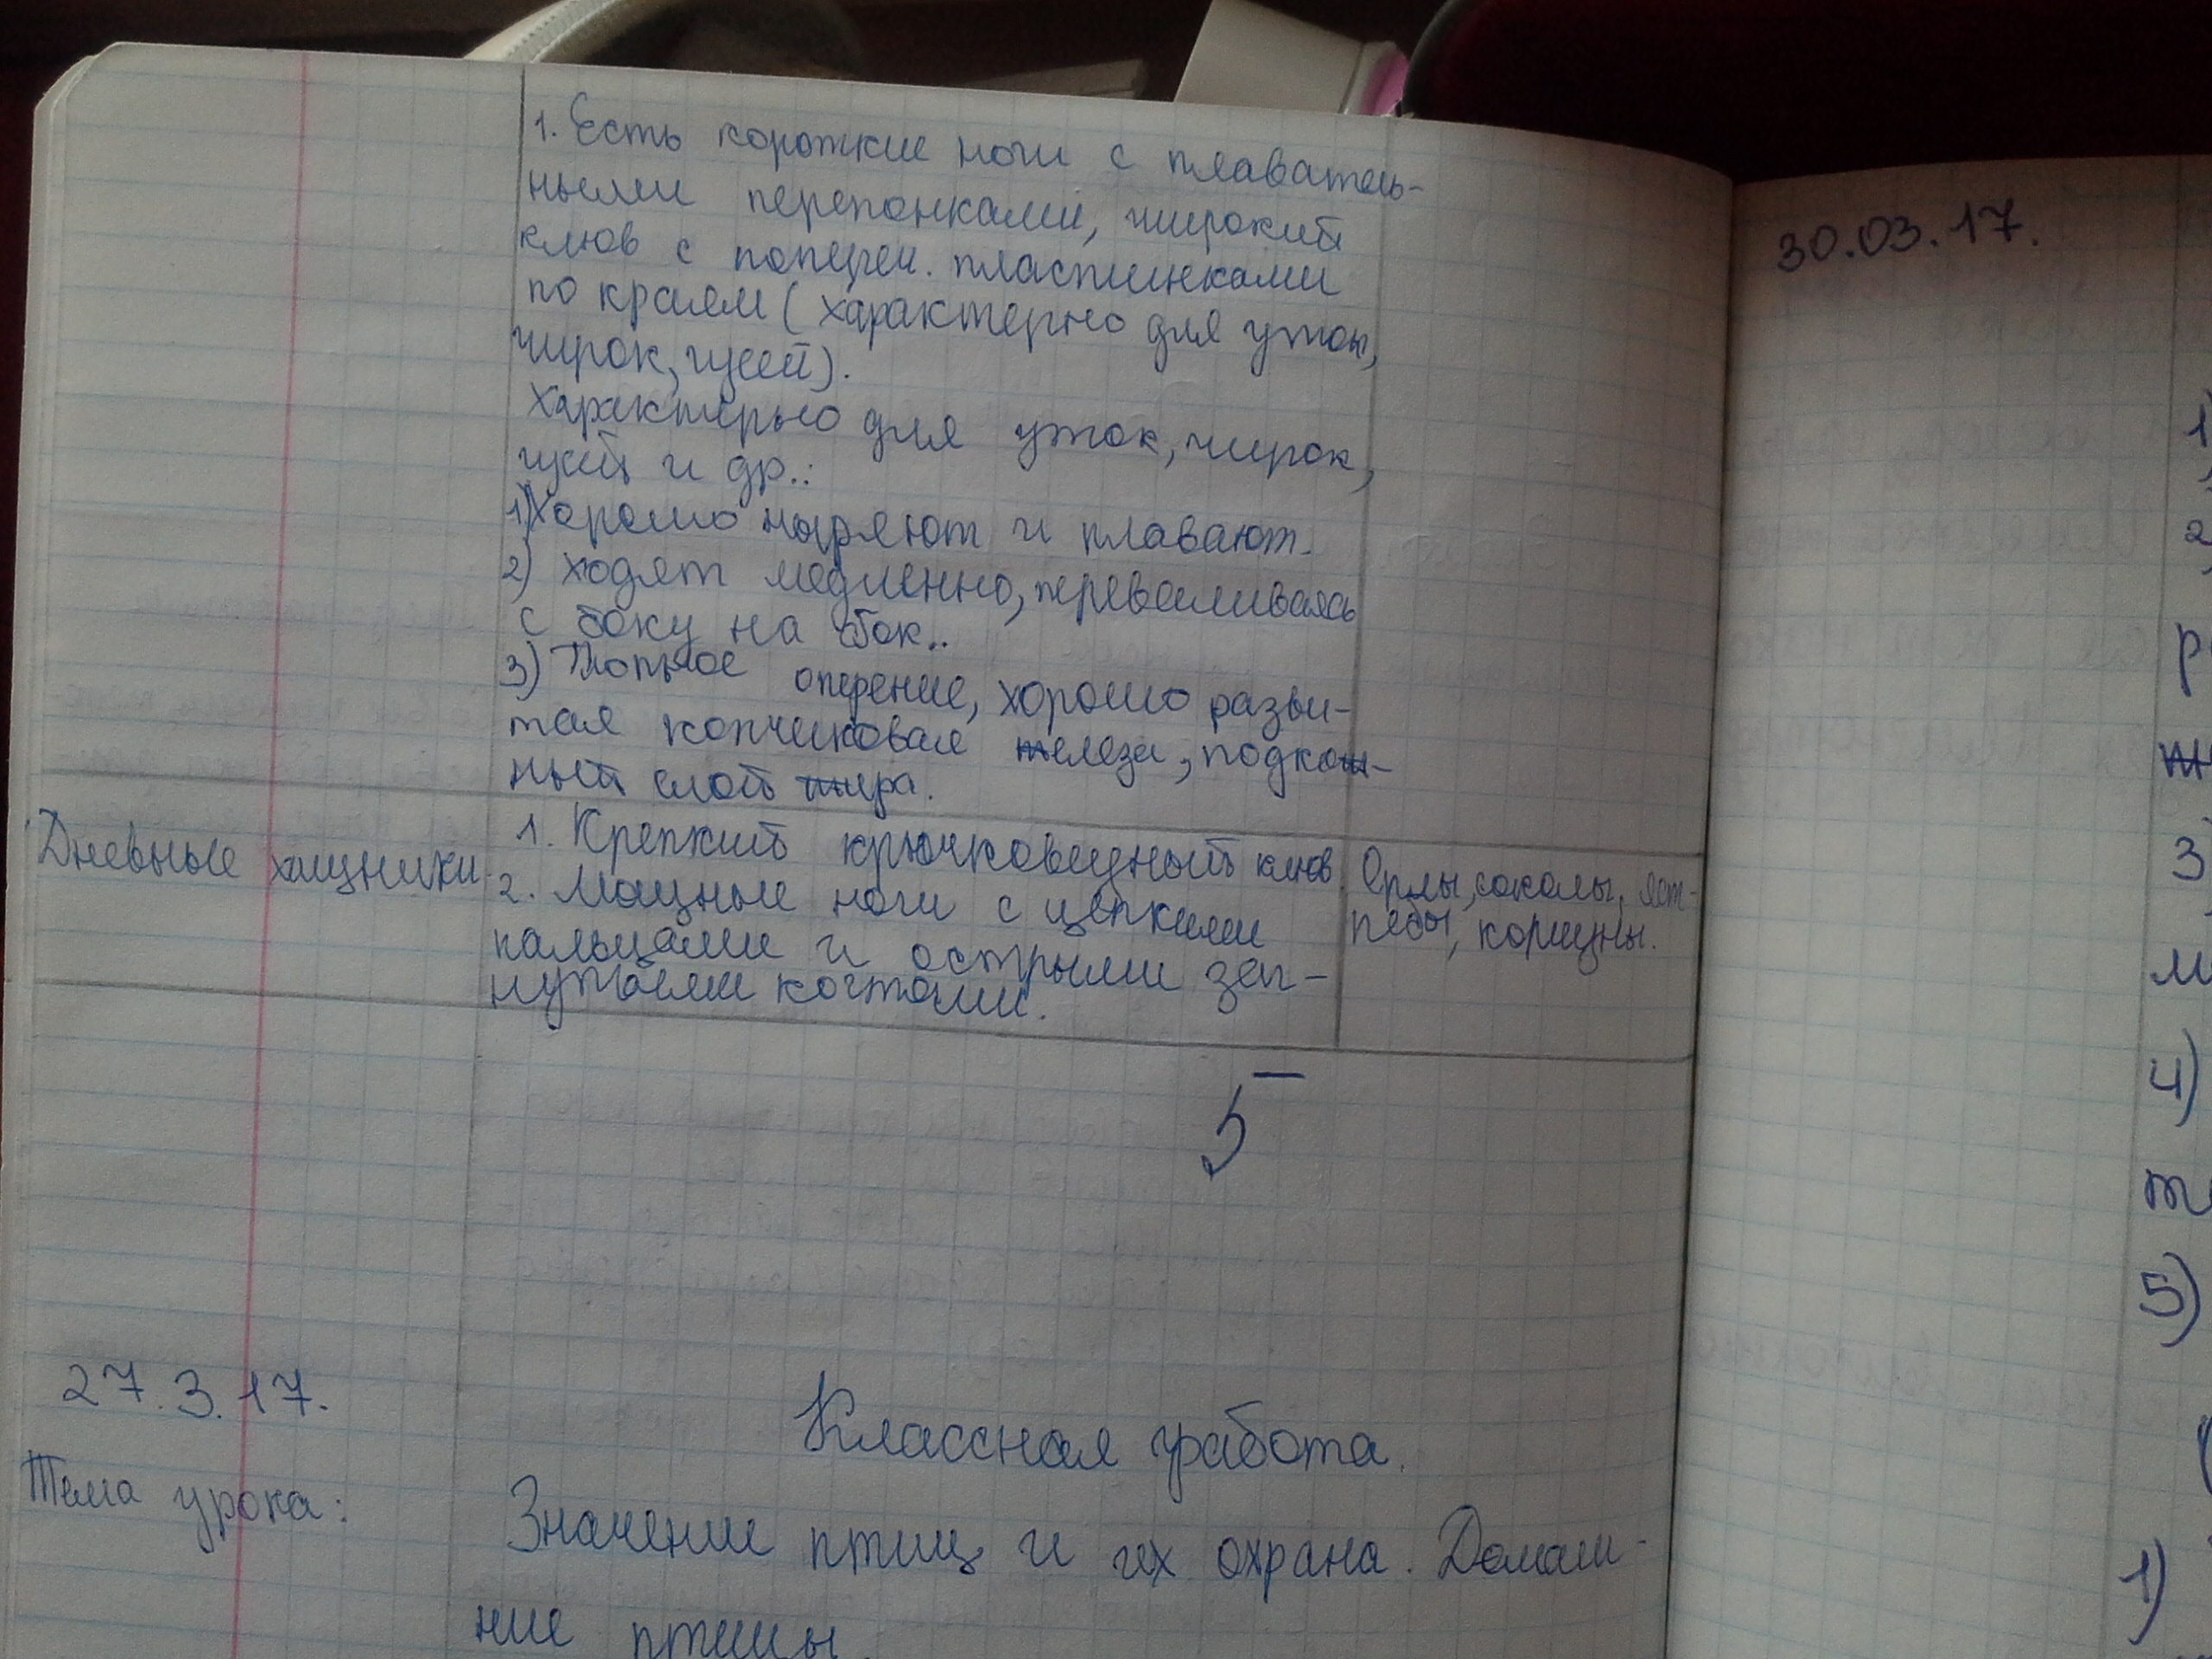 1. Есть короткие ноги с плаватель-
ными перепонками, широкий
клюв с попереч. пластинками
по краям (характерно для уток,
чирок, гусей).
Характерно для уток, чирок,
гусей и др.:
1) Хорошо ныряют и плавают.
2) Ходят медленно, переваливаясь
с боку на бок..
3) Плотное оперение, хорошо разви-
тая копчиковая железа, подкож-
ный слой жира.
Дневные хищники.
1. Крепкий крючковидный клюв.
2. Мощные ноги с цепкими
пальцами и острыми заг-
нутыми когтями.
Орлы, соколы, яст-
ребы, коршуны.
5-
27.3.17.
Классная работа.
Тема урока:
Значение птиц и их охрана. Домаш-
ние птицы.
30.03.17.
1
2
3
4)
5)
1)